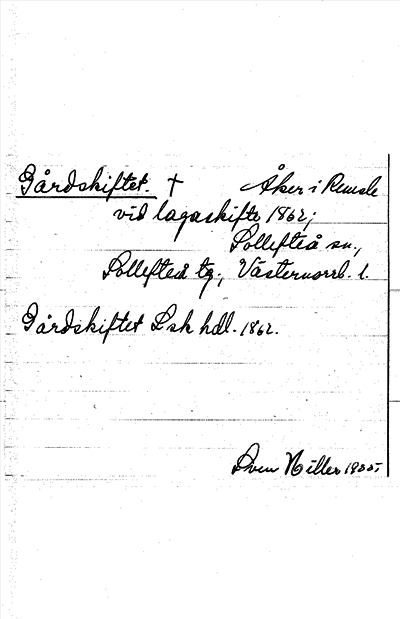 Gårdskiftet. † Åker i Remsle
vid lagaskifte 1862;
Sollefteå sn.,
Sollefteå tg., Västernorrl. l.
Gårdskiftet Lsk hdl. 1862.
Sven Hiller